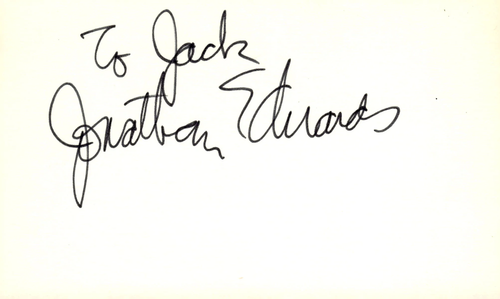 To Jack
Jonathan Edwards